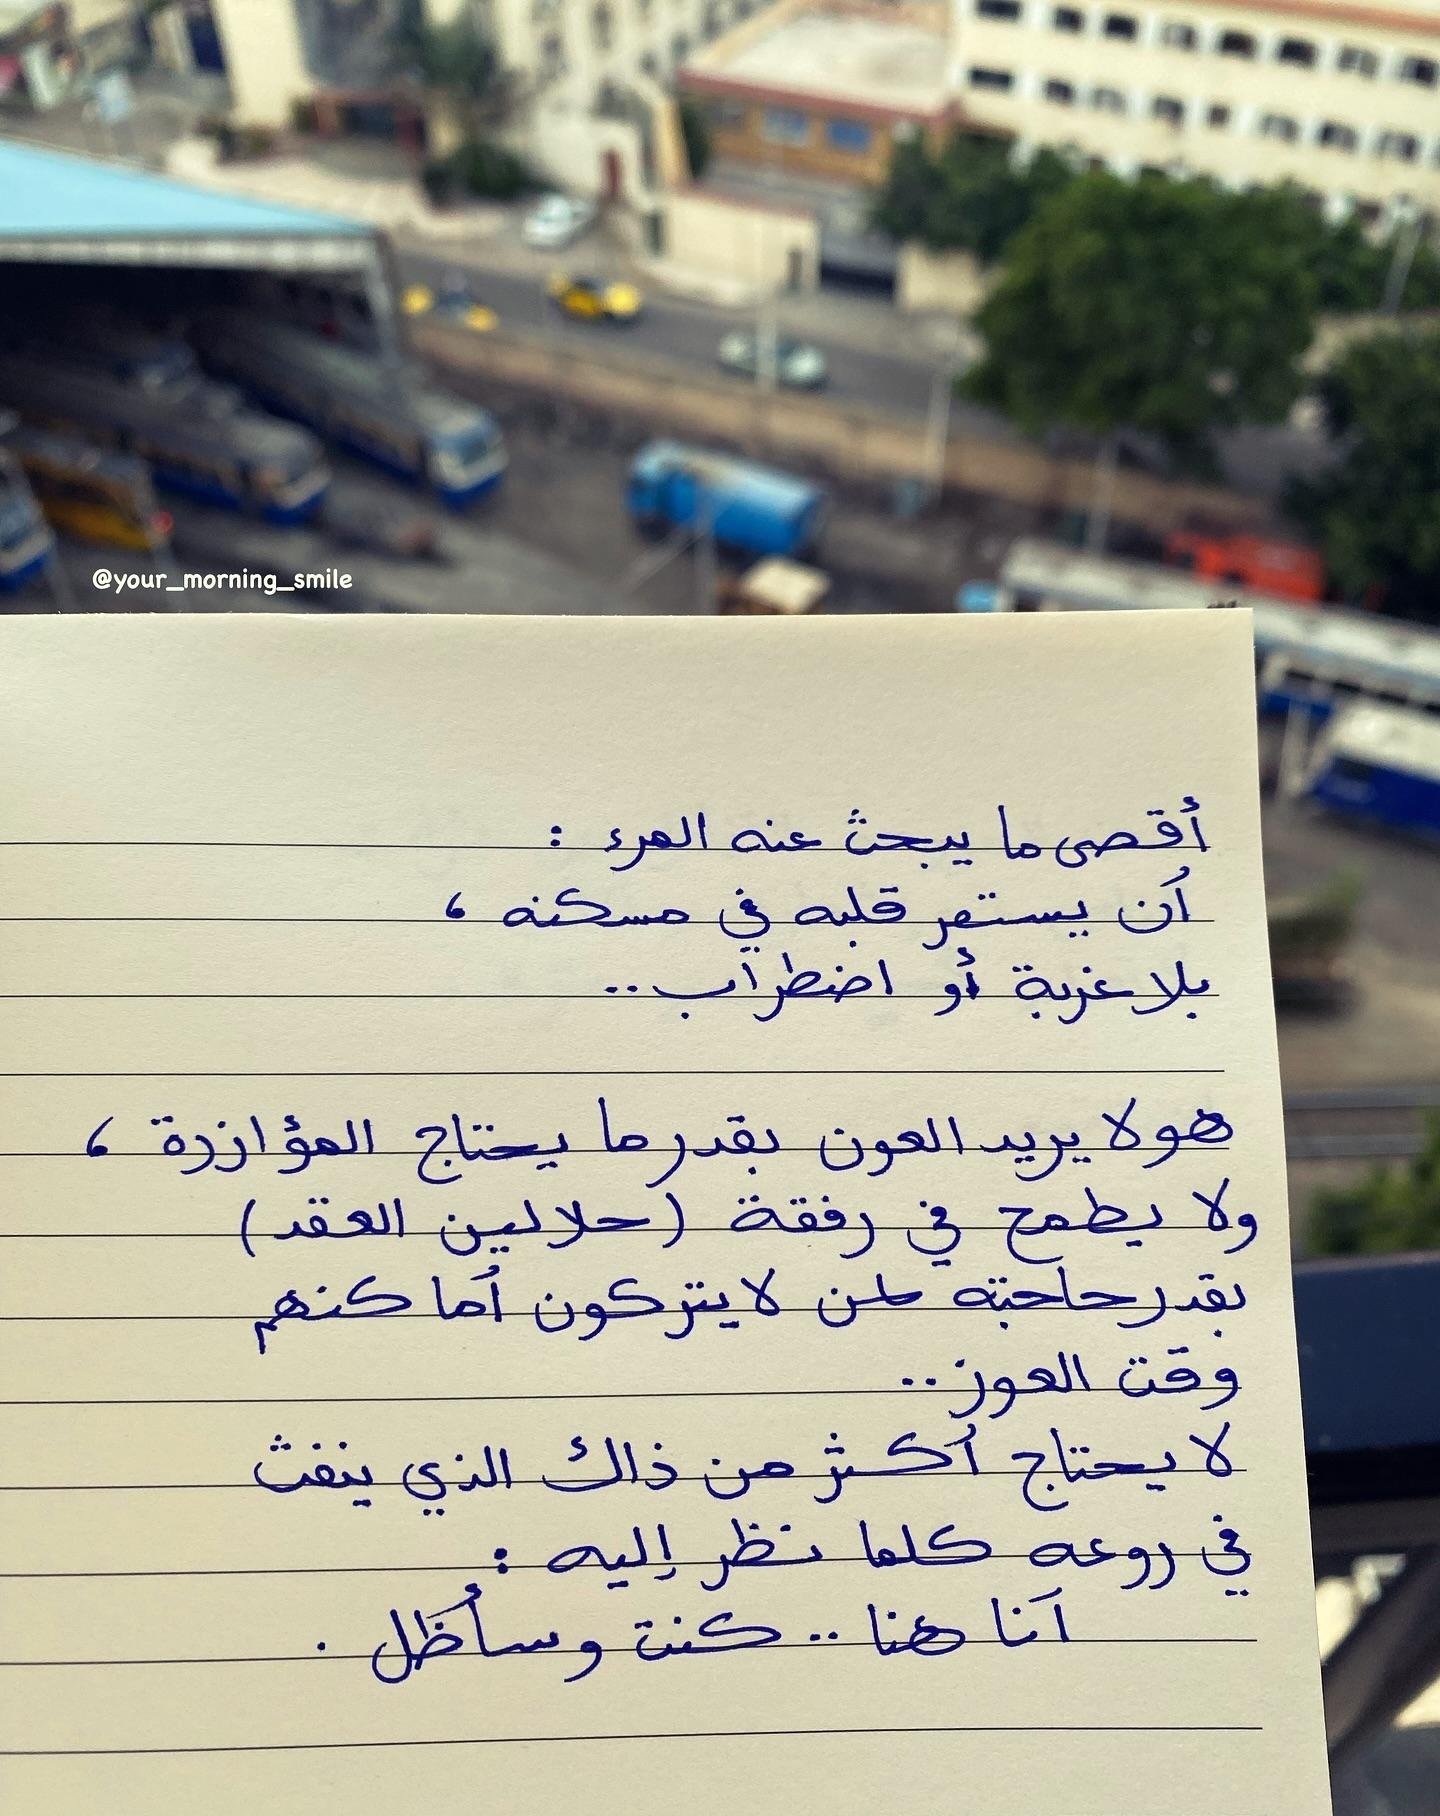 @your_morning_smile
أقصى ما يبحث عنه المرء :
أن يستقر قلبه في مسكنه ،
بلا غربة أو اضطراب..
هو لا يريد العون بقدر ما يحتاج المؤازرة ،
ولا يطمح في رفقة (حلالين العقد)
بقدر حاجته لمن لا يتركون أماكنهم
وقت العوز..
لا يحتاج أكثر من ذاك الذي ينفث
في روعه كلما نظر إليه :
أنا هنا .. كنت وسأظل .